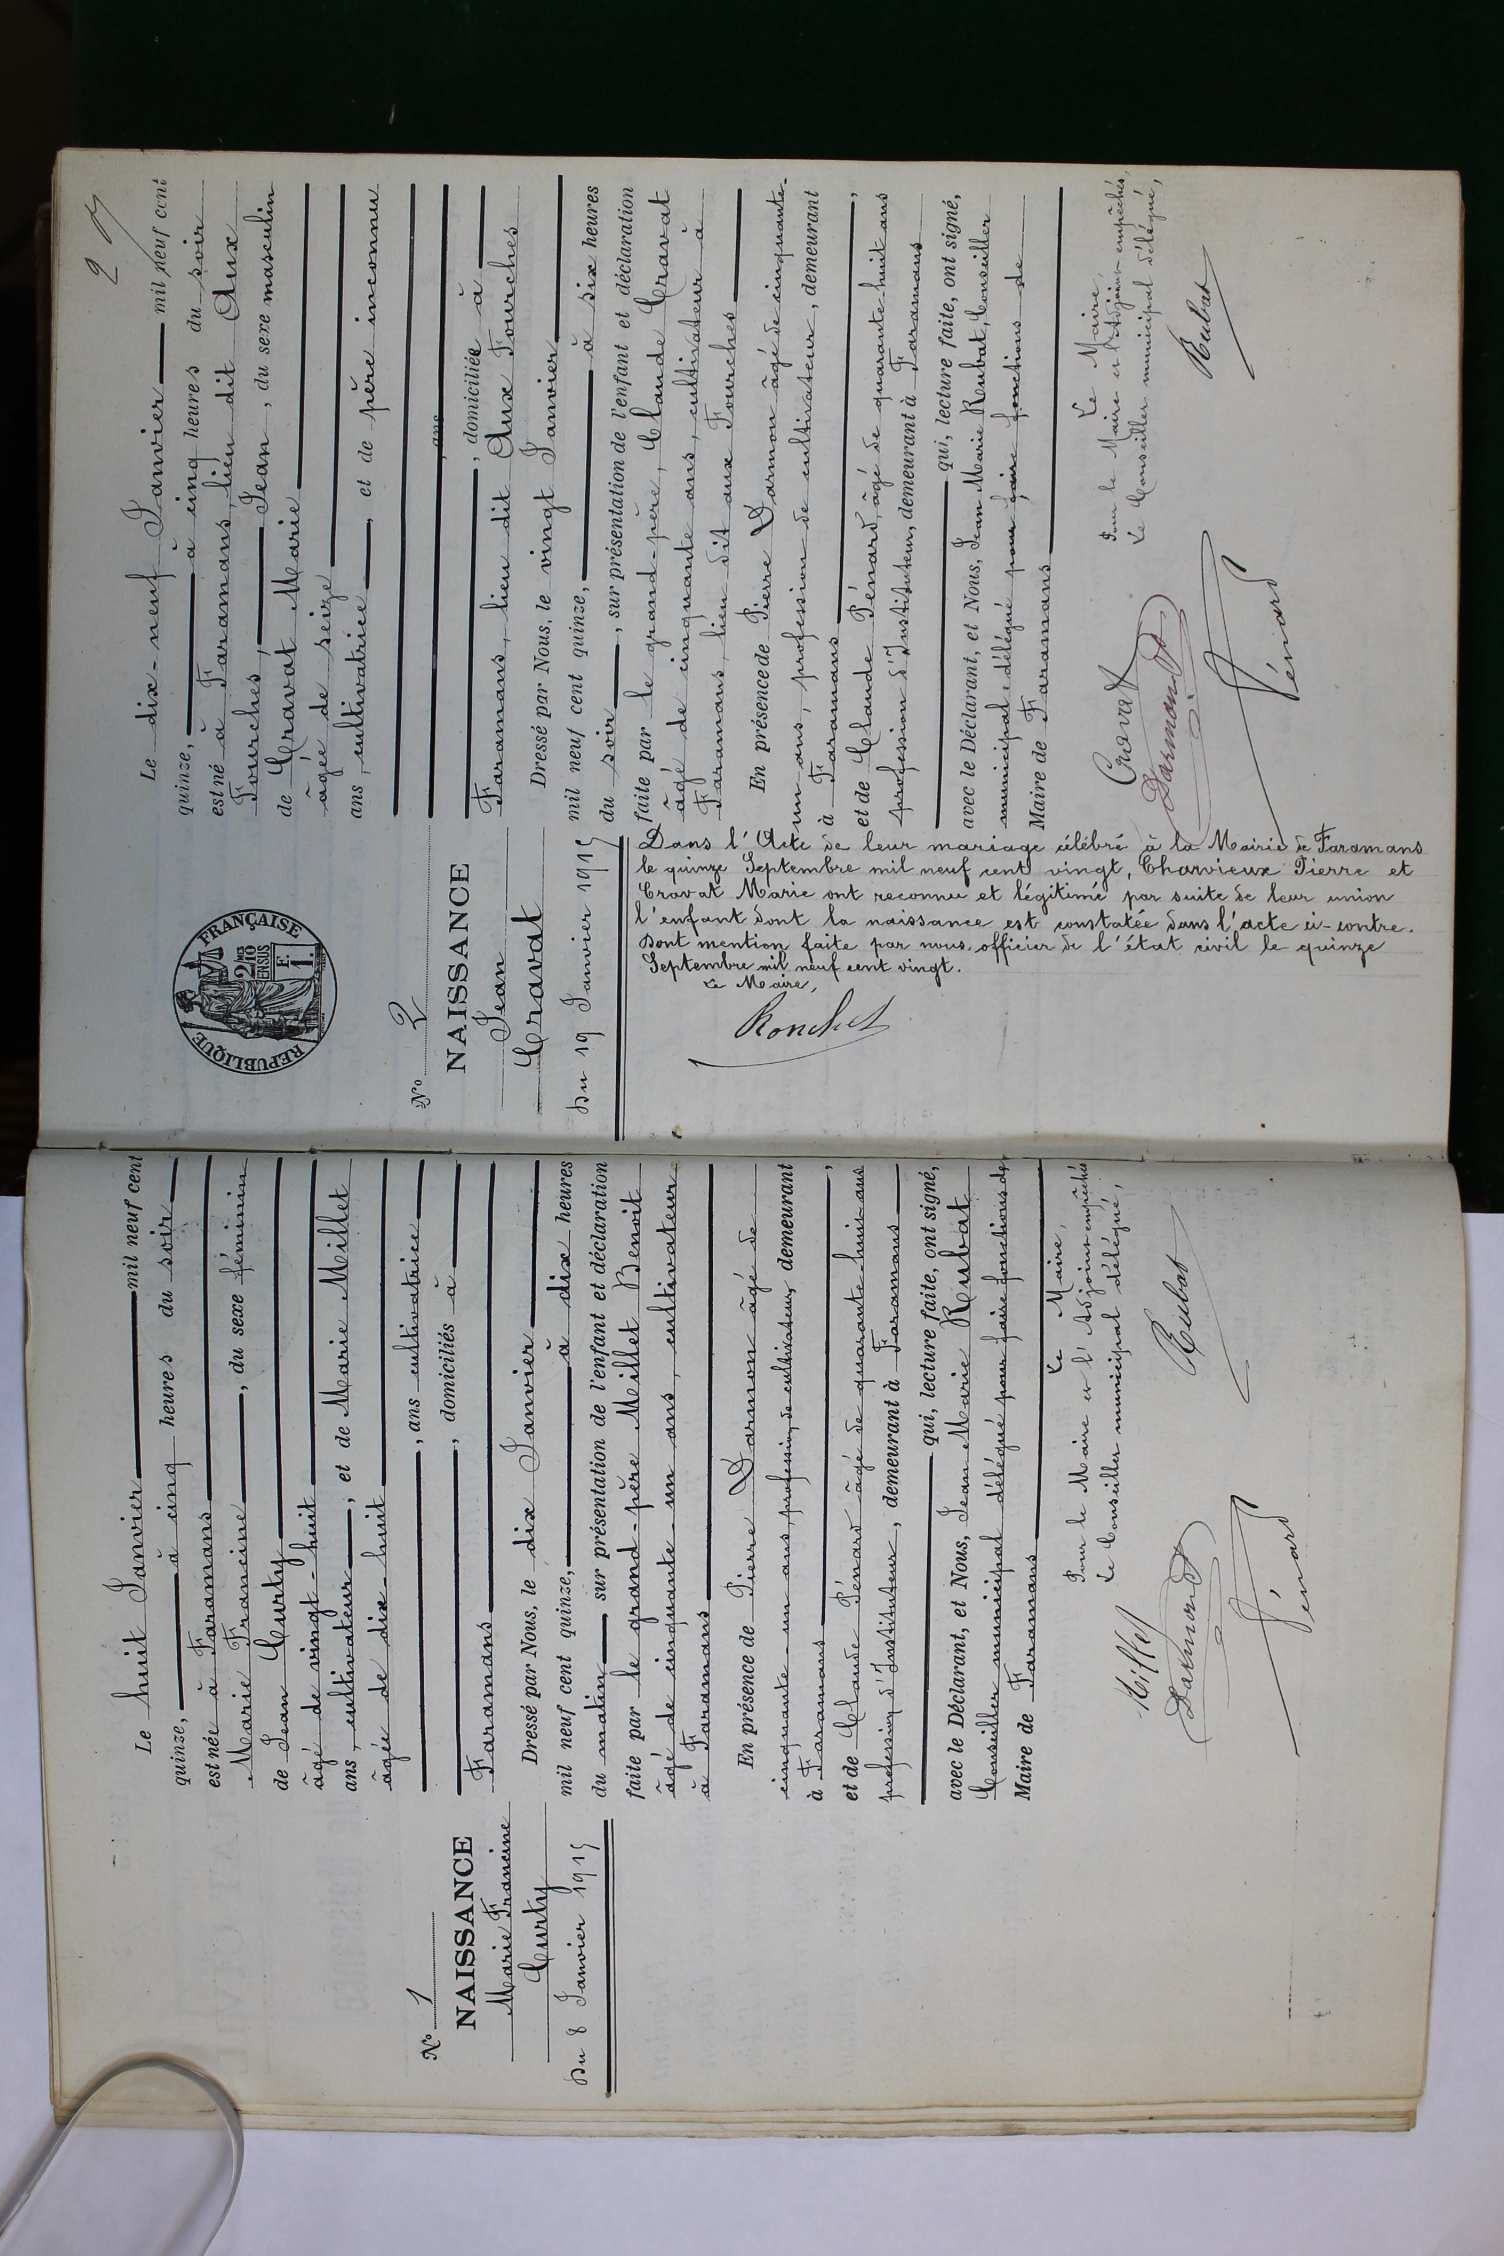 N° 1
NAISSANCE
Marie Francine
Curty
Du 8 Janvier 1915
Le huit Janvier mil neuf cent
quinze, à cinq heures du soir
est née à Faramans
Marie Francine, du sexe féminin
de Jean Curty
âgé de vingt-huit
ans, cultivateur, et de Marie Millet
âgée de dix-huit
, ans cultivatrice
, domiciliés à
Faramans
Dressé par Nous, le dix Janvier
mil neuf cent quinze, à dix heures
du matin sur présentation de l'enfant et déclaration
faite par le grand-père Millet Benoit
âgé de cinquante-un ans, cultivateur
à Faramans
En présence de Pierre Darmon âgé de
cinquante-un ans, profession de cultivateur, demeurant
à Faramans,
et de Claude Pénard âgé de quarante huit ans
profession d'Instituteur, demeurant à Faramans
qui, lecture faite, ont signé,
avec le Déclarant, et Nous, Jean Marie Rubat
Conseiller municipal délégué pour faire fonctions de
Maire de Faramans
Le Maire,
Pour le Maire et l'Adjoint empêchés
Le Conseiller municipal délégué,
Millet
Darmand
Rubat
Pénard
2
RÉPUBLIQUE FRANÇAISE
2/10
EN SUS
1 F.
N° 2
NAISSANCE
Jean
Cravat
Du 19 Janvier 1915
Dans l'Acte de leur mariage célébré à la Mairie de Faramans
le quinze Septembre mil neuf cent vingt, Charvieux Pierre et
Cravat Marie ont reconnu et légitimé par suite de leur union
l'enfant dont la naissance est constatée dans l'acte ci-contre.
Dont mention faite par nous, officier de l'état civil le quinze
Septembre mil neuf cent vingt.
Le Maire,
Ronchet
Le dix-neuf Janvier mil neuf cent
quinze, à cinq heures du soir
est né à Faramans, lieu dit Aux
Fourches, Jean, du sexe masculin
de Cravat Marie
âgée de seize
ans, cultivatrice, et de père inconnu
, ans
, domiciliée à
Faramans, lieu dit Aux Fourches
Dressé par Nous, le vingt Janvier
mil neuf cent quinze, à six heures
du soir, sur présentation de l'enfant et déclaration
faite par le grand-père, Claude Cravat
âgé de cinquante ans, cultivateur à
Faramans, lieu dit aux Fourches
En présence de Pierre Darmon âgé de cinquante-
un ans, profession de cultivateur, demeurant
à Faramans,
et de Claude Pénard, âgé de quarante-huit ans
profession d'Instituteur, demeurant à Faramans
qui, lecture faite, ont signé,
avec le Déclarant, et Nous, Jean Marie Rubat, Conseiller
municipal, délégué pour faire fonctions de
Maire de Faramans
Le Maire,
Pour le Maire et l'Adjoint empêchés,
Le Conseiller municipal délégué,
Cravat
Darmand
Rubat
Pénard